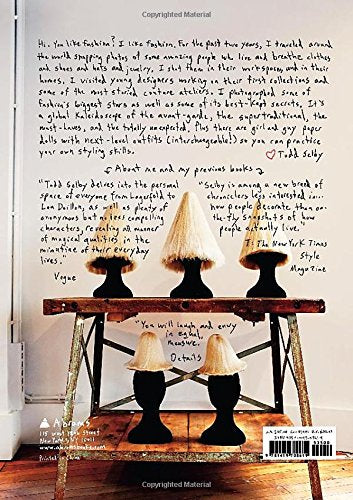 Copyrighted Material
Hi. You like fashion? I like fashion. For the past two years, I traveled around
the world snapping photos of some amazing people who live and breathe clothes
and shoes and hats and jewelry. I shot them in their workspaces and in their
homes. I visited young designers working on their first collections and
some of the most storied couture ateliers. I photographed some of
fashion's biggest stars as well as some of its best-kept secrets. It's
a global kaleidoscope of the avant-garde, the supertraditional, the
must-haves, and the totally unexpected. Plus there are girl and guy paper
dolls with next-level outfits (interchangeable!) so you can practice
your own styling skills.
♡ Todd Selby
About me and my previous books
"Todd Selby delves into the personal
space of everyone from Lagerfeld to
Lou Doillon, as well as plenty of
anonymous but no less compelling
characters, revealing all manner
of magical qualities in the
minutiae of their everyday
lives."
Vogue
"Selby is among a new breed of
chroniclers less interested in
how people decorate than on-
the-fly snapshots of how
people actually live."
T: The New York Times
Style
Magazine
"You will laugh and envy
in equal
measure."
Details
Abrams
115 West 18th Street
New York, NY 10011
www.abramsbooks.com
Printed in China
Copyrighted Material